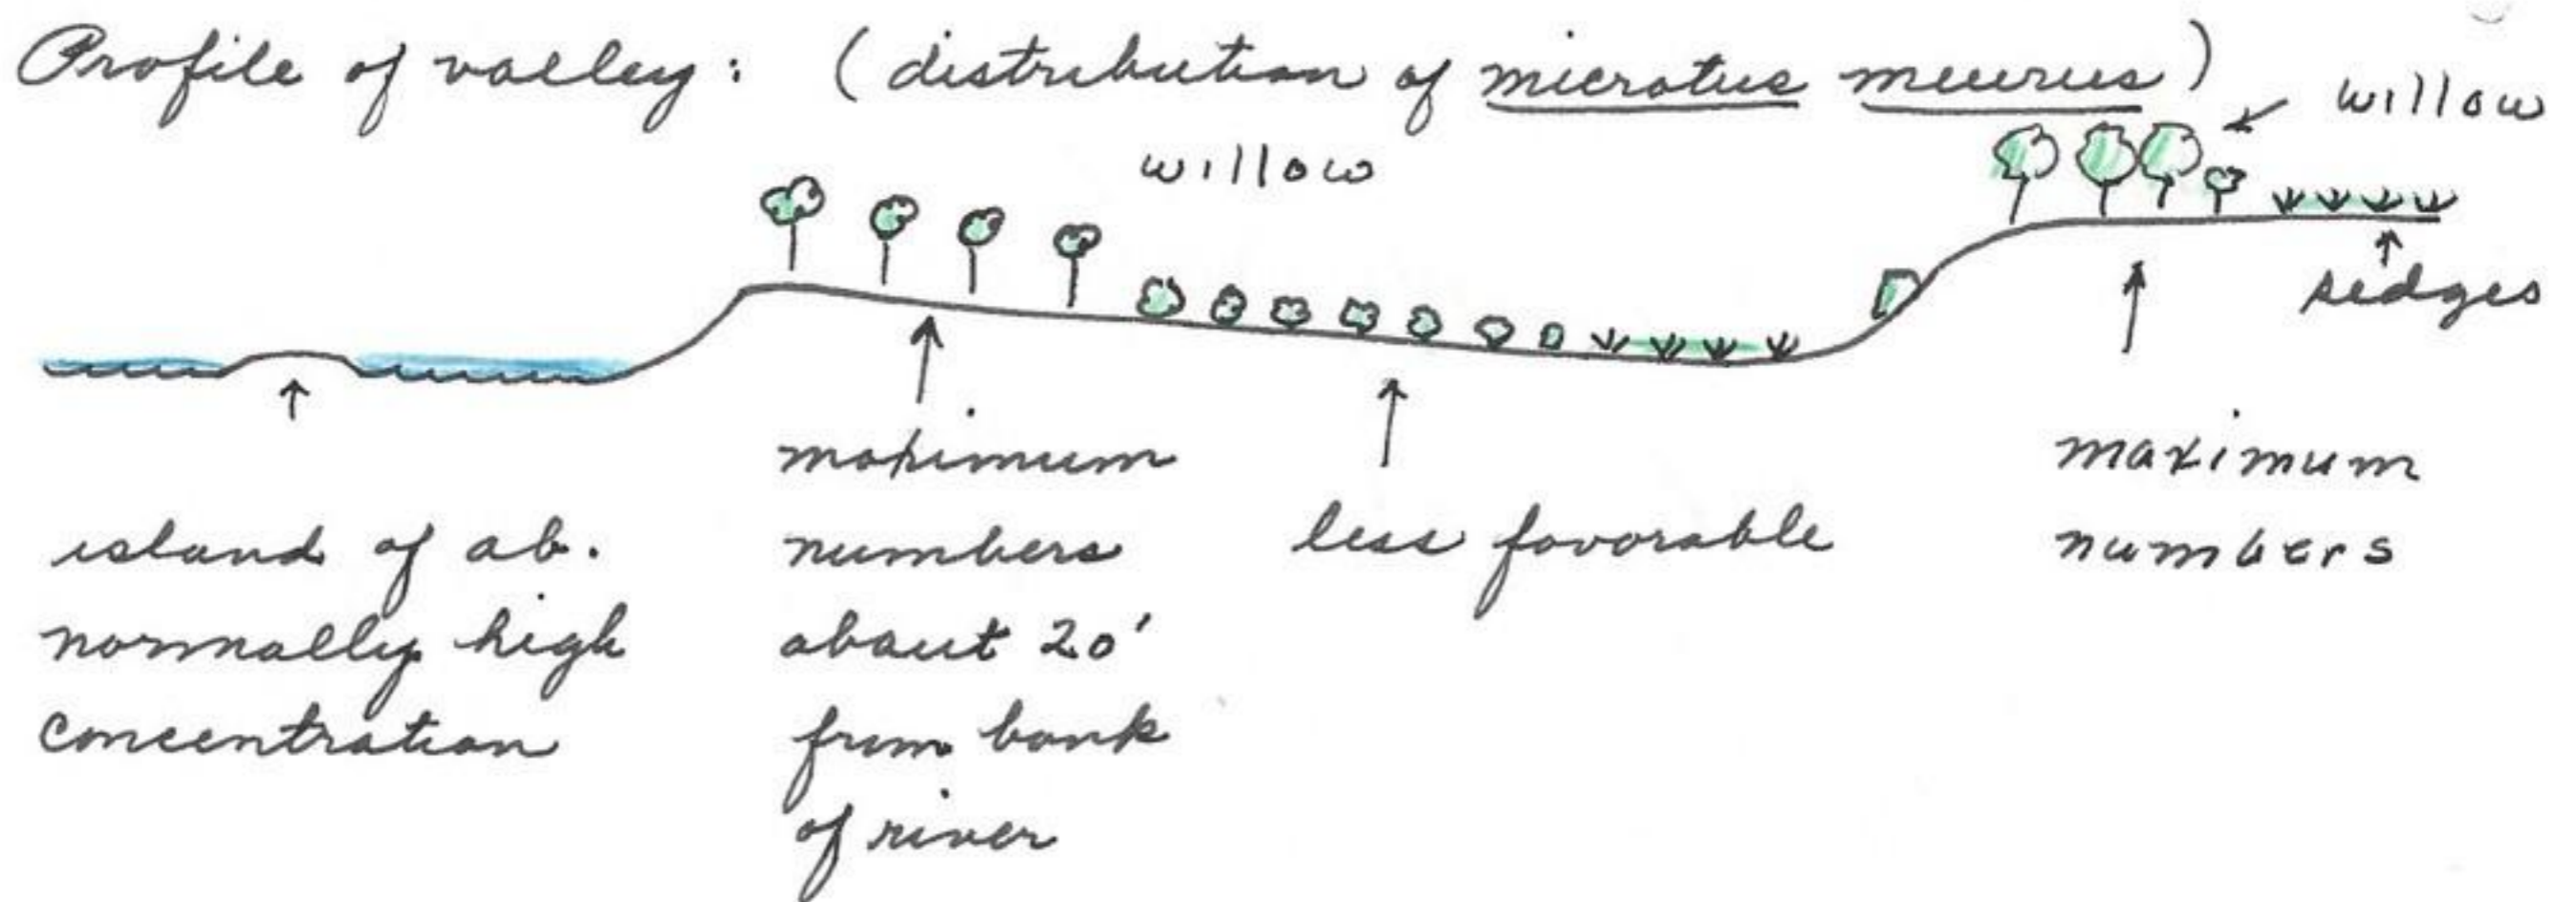 Profile of valley: (distribution of microtus miurus)
willow
willow
sedges
island of ab.
normally high
concentration
maximum
numbers
about 20'
from bank
of river
less favorable
maximum
numbers